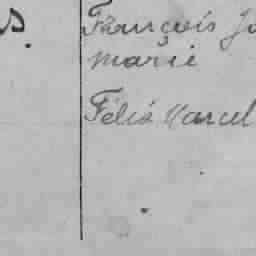 s.
François Jo
marie
Félix Marcel